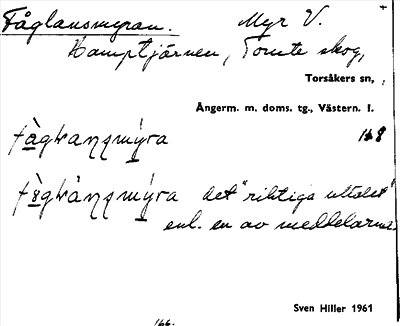 Fåglansmyran. Myr V.
Kamptjärnen, Tomte skog,
Torsåkers sn,
Ångerm. m. doms. tg., Västern. l.
168
det "riktiga uttalet"
enl. en av meddelarna.
Sven Hiller 1961
166.